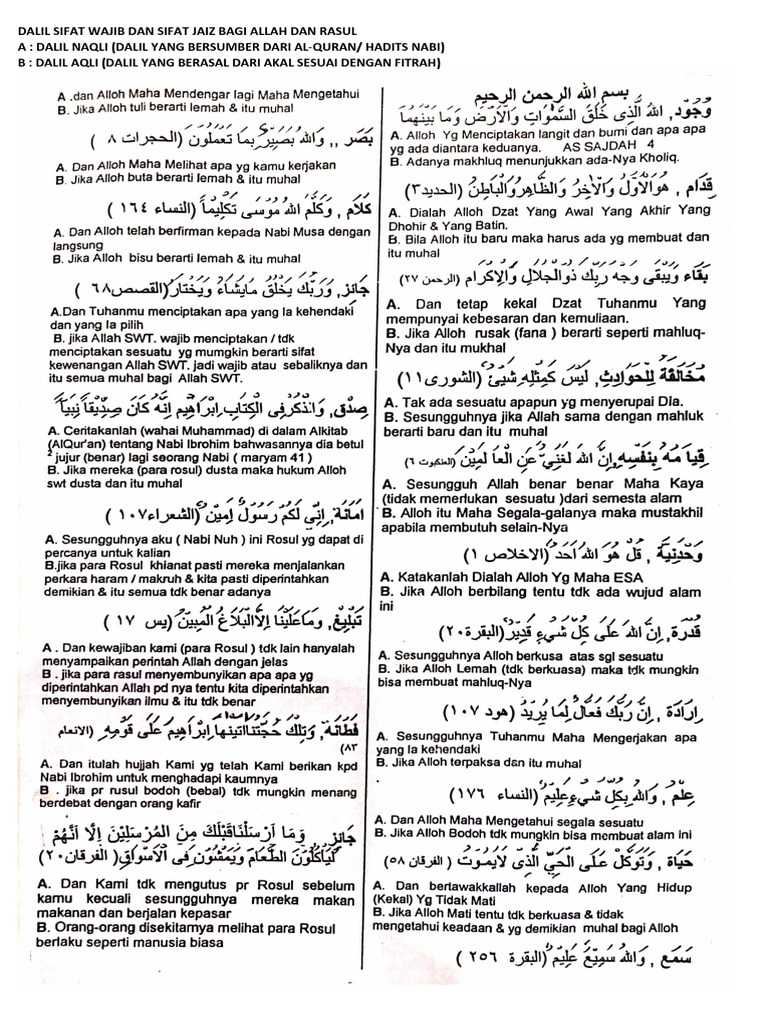 DALIL SIFAT WAJIB DAN SIFAT JAIZ BAGI ALLAH DAN RASUL
A : DALIL NAQLI (DALIL YANG BERSUMBER DARI AL-QURAN/ HADITS NABI)
B : DALIL AQLI (DALIL YANG BERASAL DARI AKAL SESUAI DENGAN FITRAH)
بسم الله الرحمن الرحيم
وُجُوْد, اَللهُ الَّذِى خَلَقَ السَّمٰوَاتِ وَالْاَرْضَ وَمَا بَيْنَهُمَا
A. Alloh Yg Menciptakan langit dan bumi dan apa apa
yg ada diantara keduanya. AS SAJDAH 4
B. Adanya makhluq menunjukkan ada-Nya Kholiq.
قِدَام , هُوَالْاَوَّلُ وَالْاٰخِرُ وَالظَّاهِرُوَالْبَاطِنُ (الحديد٣)
A. Dialah Alloh Dzat Yang Awal Yang Akhir Yang
Dhohir & Yang Batin.
B. Bila Alloh itu baru maka harus ada yg membuat dan
itu muhal
بَقَاء وَيَبْقَى وَجْهُ رَبِّكَ ذُوالْجَلَالِ وَالْاِكْرَامِ (الرحمن ٢٧)
A. Dan tetap kekal Dzat Tuhanmu Yang
mempunyai kebesaran dan kemuliaan.
B. Jika Alloh rusak (fana ) berarti seperti mahluq-
Nya dan itu mukhal
مُخَالَفَة لِلْحَوَادِثِ, لَيْسَ كَمِثْلِهِ شَيْئٌ (الشورى١١)
A. Tak ada sesuatu apapun yg menyerupai Dia.
B. Sesungguhnya jika Allah sama dengan mahluk
berarti baru dan itu muhal
قِيَا مُهُ بِنَفْسِهِ, اِنَّ اللهَ لَغَنِيٌّ عَنِ الْعَا لَمِيْنَ (العنكبوت ٦)
A. Sesungguh Allah benar benar Maha Kaya
(tidak memerlukan sesuatu )dari semesta alam
B. Alloh itu Maha Segala-galanya maka mustakhil
apabila membutuh selain-Nya
وَحْدَنِيَة , قُلْ هُوَ اللهُ اَحَدٌ (الاخلاص ١)
A. Katakanlah Dialah Alloh Yg Maha ESA
B. Jika Alloh berbilang tentu tdk ada wujud alam
ini
قُدْرَة, اِنَّ اللهَ عَلَى كُلِّ شَيْءٍ قَدِيْرٌ (البقرة٢٠)
A. Sesungguhnya Alloh berkusa atas sgl sesuatu
B. Jika Alloh Lemah (tdk berkuasa) maka tdk mungkin
bisa membuat mahluq-Nya
اِرَادَة , اِنَّ رَبَّكَ فَعَّالٌ لِمَا يُرِيْدُ (هود ١٠٧)
A. Sesungguhnya Tuhanmu Maha Mengerjakan apa
yang Ia kehendaki
B. Jika Alloh terpaksa dan itu muhal
عِلْم , وَاللهُ بِكُلِّ شَيْءٍ عَلِيْمٌ (النساء ١٧٦)
A. Dan Alloh Maha Mengetahui segala sesuatu
B. Jika Alloh Bodoh tdk mungkin bisa membuat alam ini
حَيَاة , وَتَوَكَّلْ عَلَى الْحَيِّ الَّذِى لَايَمُوْتُ (الفرقان ٥٨)
A. Dan bertawakkallah kepada Alloh Yang Hidup
(Kekal) Yg Tidak Mati
B. Jika Alloh Mati tentu tdk berkuasa & tidak
mengetahui keadaan & yg demikian muhal bagi Alloh
سَمَع , وَاللهُ سَمِيْعٌ عَلِيْمٌ (البقرة ٢٥٦ )
A .dan Alloh Maha Mendengar lagi Maha Mengetahui
B. Jika Alloh tuli berarti lemah & itu muhal
بَصَر ,, وَاللهُ بَصِيْرٌ بِمَا تَعْمَلُوْنَ (الحجرات ٨ )
A. Dan Alloh Maha Melihat apa yg kamu kerjakan
B. Jika Alloh buta berarti lemah & itu muhal
كَلَام , وَكَلَّمَ اللهُ مُوْسَى تَكْلِيْمًا (النساء ١٦٤ )
A. Dan Alloh telah berfirman kepada Nabi Musa dengan
langsung
B. Jika Alloh bisu berarti lemah & itu muhal
جَائِز, وَرَبُّكَ يَخْلُقُ مَايَشَاءُ وَيَخْتَارُ (القصص٦٨ )
A.Dan Tuhanmu menciptakan apa yang Ia kehendaki
dan yang Ia pilih
B. jika Allah SWT. wajib menciptakan / tdk
menciptakan sesuatu yg mumgkin berarti sifat
kewenangan Allah SWT. jadi wajib atau sebaliknya dan
itu semua muhal bagi Allah SWT.
صِدْق, وَاذْكُرْفِى الْكِتَابِ اِبْرَاهِيْمَ اِنَّهُ كَانَ صِدِّيْقًا نَبِيًّا
A. Ceritakanlah (wahai Muhammad) di dalam Alkitab
(AlQur'an) tentang Nabi Ibrohim bahwasannya dia betul
² jujur (benar) lagi seorang Nabi ( maryam 41 )
B. Jika mereka (para rosul) dusta maka hukum Alloh
swt dusta dan itu muhal
اَمَانَة, اِنِّي لَكُمْ رَسُوْلٌ اَمِيْنٌ (الشعراء١٠٧ )
A. Sesungguhnya aku ( Nabi Nuh ) ini Rosul yg dapat di
percanya untuk kalian
B.jika para Rosul khianat pasti mereka menjalankan
perkara haram / makruh & kita pasti diperintahkan
demikian & itu semua tdk benar adanya
تَبْلِيْغ, وَمَاعَلَيْنَا اِلَّاالْبَلَاغُ الْمُبِيْنُ (يس ١٧ )
A . Dan kewajiban kami (para Rosul ) tdk lain hanyalah
menyampaikan perintah Allah dengan jelas
B . jika para rasul menyembunyikan apa apa yg
diperintahkan Allah pd nya tentu kita diperintahkan
menyembunyikan ilmu & itu tdk benar
فَطَانَة, وَتِلْكَ حُجَّتُنَااٰتَيْنَهَااِبْرَاهِيْمَ عَلَى قَوْمِهِ (الانعام
٨٣)
A. Dan itulah hujjah Kami yg telah Kami berikan kpd
Nabi Ibrohim untuk menghadapi kaumnya
B . jika pr rusul bodoh (bebal) tdk mungkin menang
berdebat dengan orang kafir
جَائِز , وَمَا اَرْسَلْنَاقَبْلَكَ مِنَ الْمُرْسَلِيْنَ اِلَّا اَنَّهُمْ
لَيَأْكُلُوْنَ الطَّعَامَ وَيَمْشُوْنَ فِى الْاَسْوَاقِ( الفرقان٢٠)
A. Dan Kami tdk mengutus pr Rosul sebelum
kamu kecuali sesungguhnya mereka makan
makanan dan berjalan kepasar
B. Orang-orang disekitarnya melihat para Rosul
berlaku seperti manusia biasa